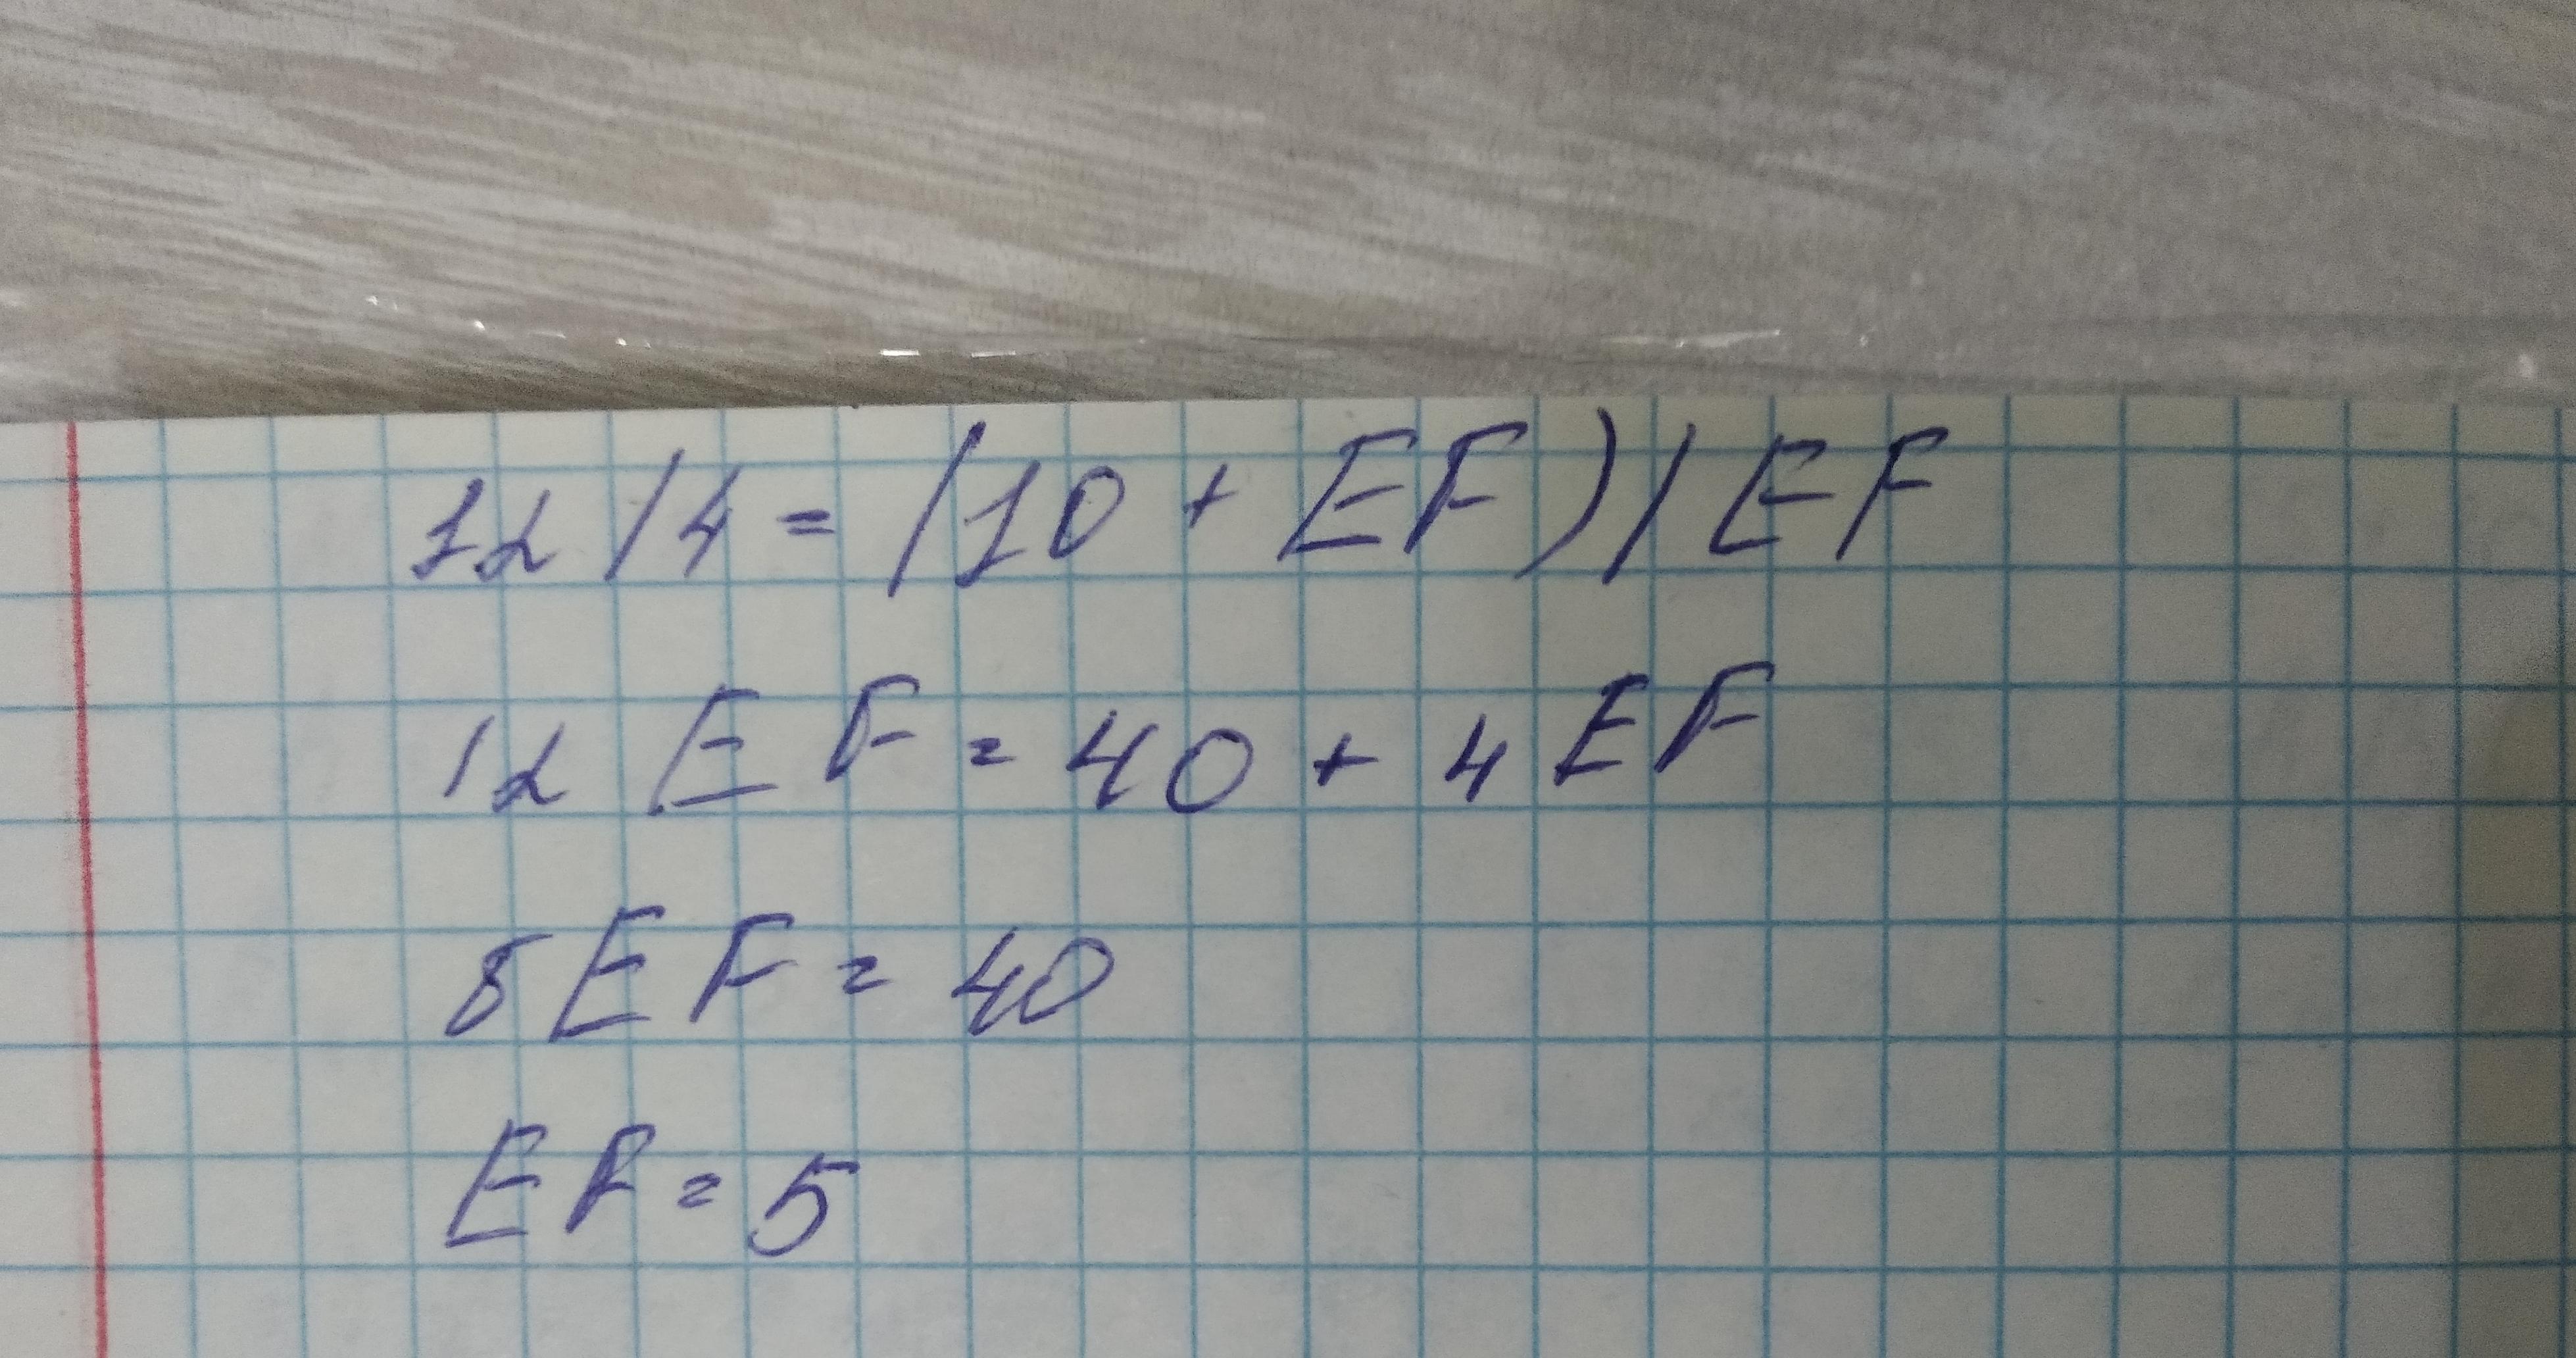 12/4=(10+EF)/EF
12EF=40+4EF
8EF=40
EF=5